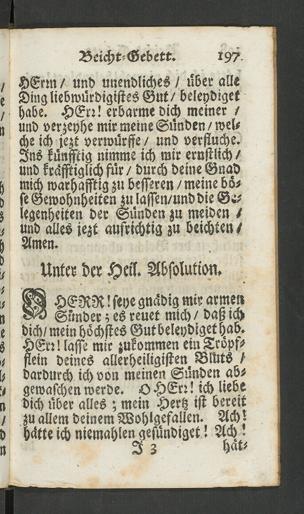 Beicht-Gebett. 197.
HErrn / und unendliches / über alle
Ding liebwürdigistes Gut / beleydiget
habe. HErr! erbarme dich meiner /
und verzeyhe mir meine Sünden / wel-
che ich jezt verwürffe / und verfluche.
Ins künfftig nimme ich mir ernstlich /
und kräfftiglich für / durch deine Gnad
mich warhafftig zu besseren / meine bö-
se Gewohnheiten zu lassen / und die Ge-
legenheiten der Sünden zu meiden /
und alles jezt aufrichtig zu beichten /
Amen.
Unter der Heil. Absolution.
O HERR! seye gnädig mir armen
Sünder; es reuet mich / daß ich
dich / mein höchstes Gut beleydiget hab.
HErr! lasse mir zukommen ein Tröpf-
flein deines allerheiligisten Bluts /
dardurch ich von meinen Sünden ab-
gewaschen werde. O HErr! ich liebe
dich über alles; mein Hertz ist bereit
zu allem deinem Wohlgefallen. Ach!
hätte ich niemahlen gesündiget! Ach!
J 3 hät-